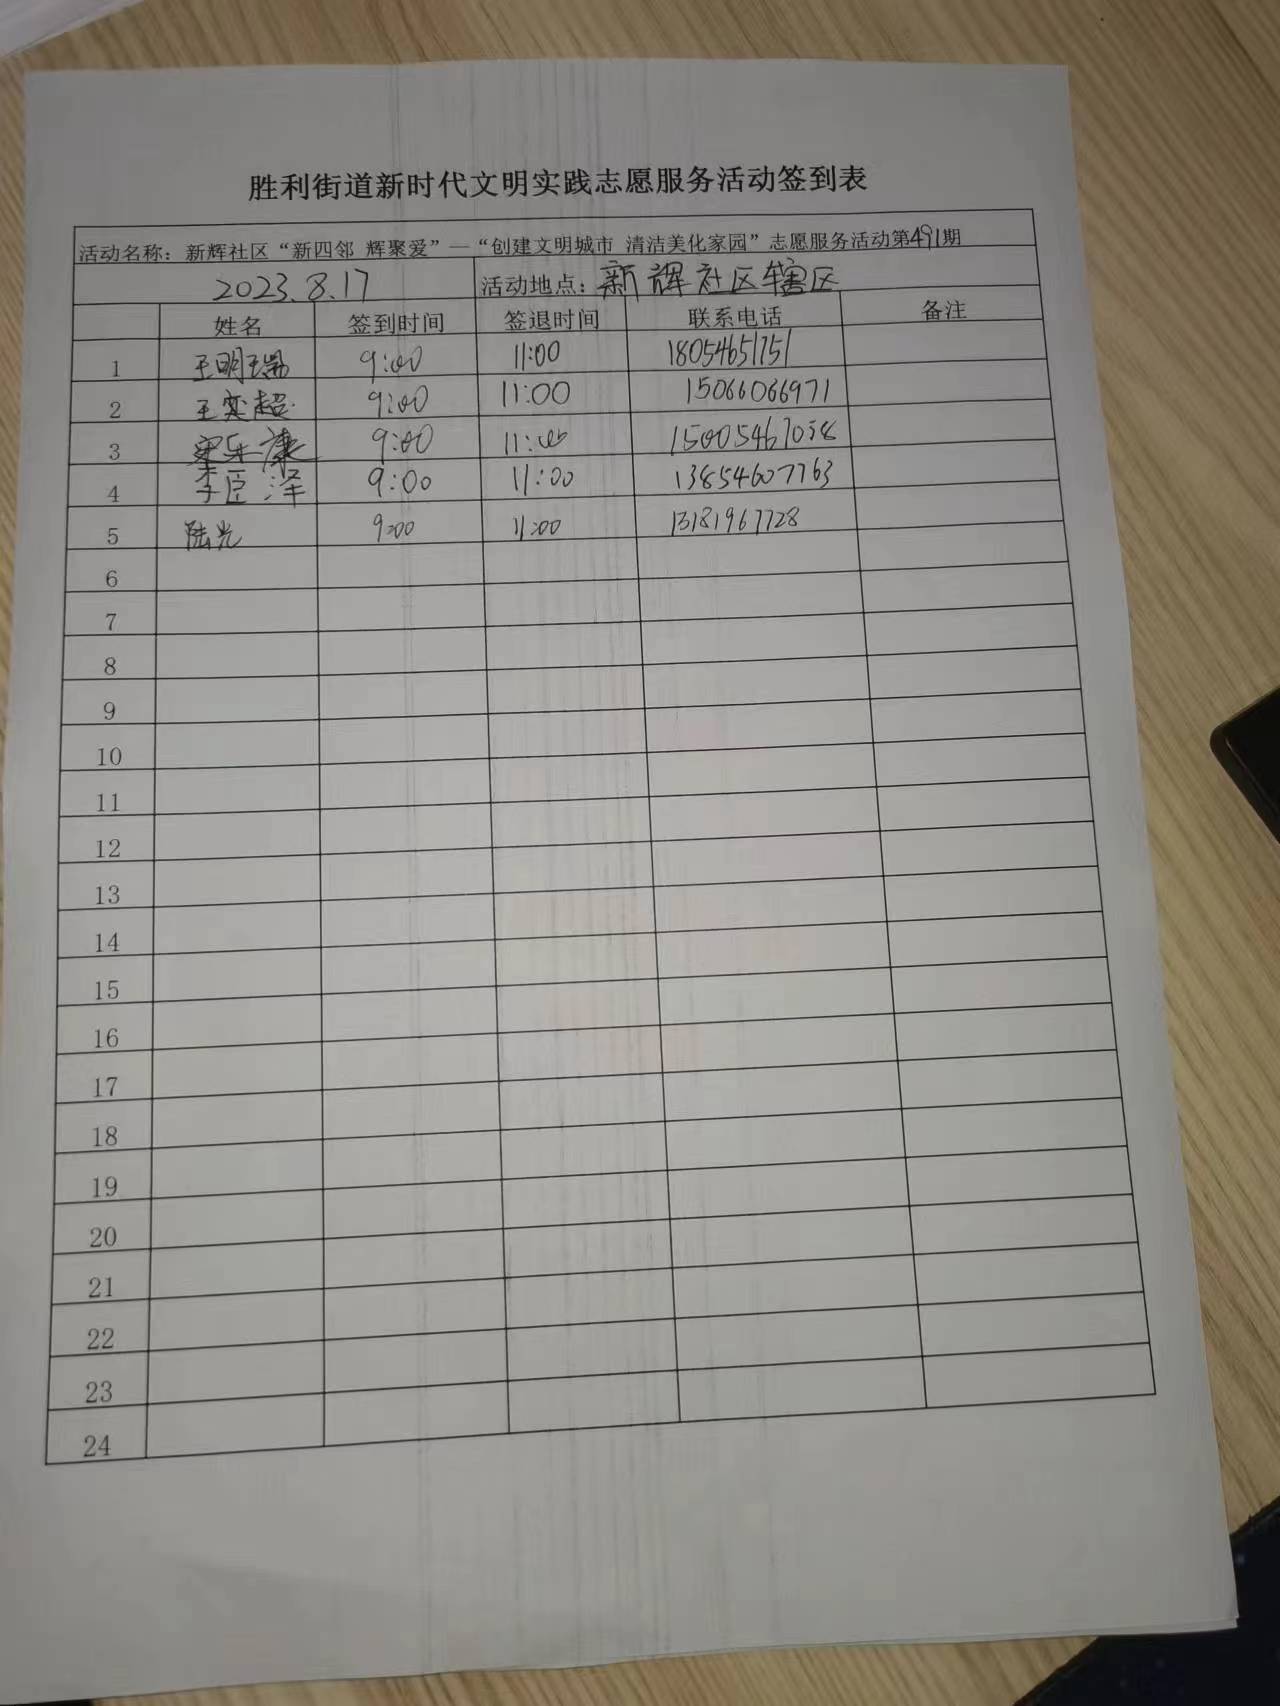 胜利街道新时代文明实践志愿服务活动签到表
活动名称：新辉社区“新四邻 辉聚爱”—“创建文明城市 清洁美化家园”志愿服务活动第491期
2023.8.17 活动地点：新辉社区辖区
姓名 签到时间 签退时间 联系电话 备注
1 王明瑞 9:00 11:00 18054651751
2 王奕超 9:00 11:00 15066066971
3 9:00 11:00
4 李臣泽 9:00 11:00 13854607763
5 陆光 9:00 11:00 13181967728
6
7
8
9
10
11
12
13
14
15
16
17
18
19
20
21
22
23
24